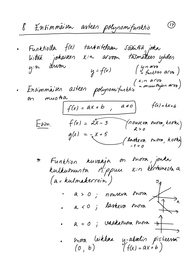 8 Ensimmäisen asteen polynomifunktio
• Funktiolla f(x) tarkoitetaan sääntöä joka
liittää jokaiseen x:n arvoon täsmälleen yhden
y:n arvon
y = f(x)
(y = arvo
x:n = muuttujan arvo)
• Ensimmäisen asteen polynomifunktio
on muotoa
f(x) = ax + b , a ≠ 0
f(x) = kx + b
Esim. f(x) = 2x - 5 (nouseva suora, koska
g(x) = -x + 5 (laskeva suora, koska
• Funktion kuvaaja on suora, jonka
kulkusuunta riippuu x:n kertoimesta a
(a = kulmakerroin)
• a > 0 ; nouseva suora
• a < 0 ; laskeva suora
• a = 0 ; vaakasuora suora
• suora leikkaa y-akselin pisteessä
(0, b) (f(x) = ax + b)